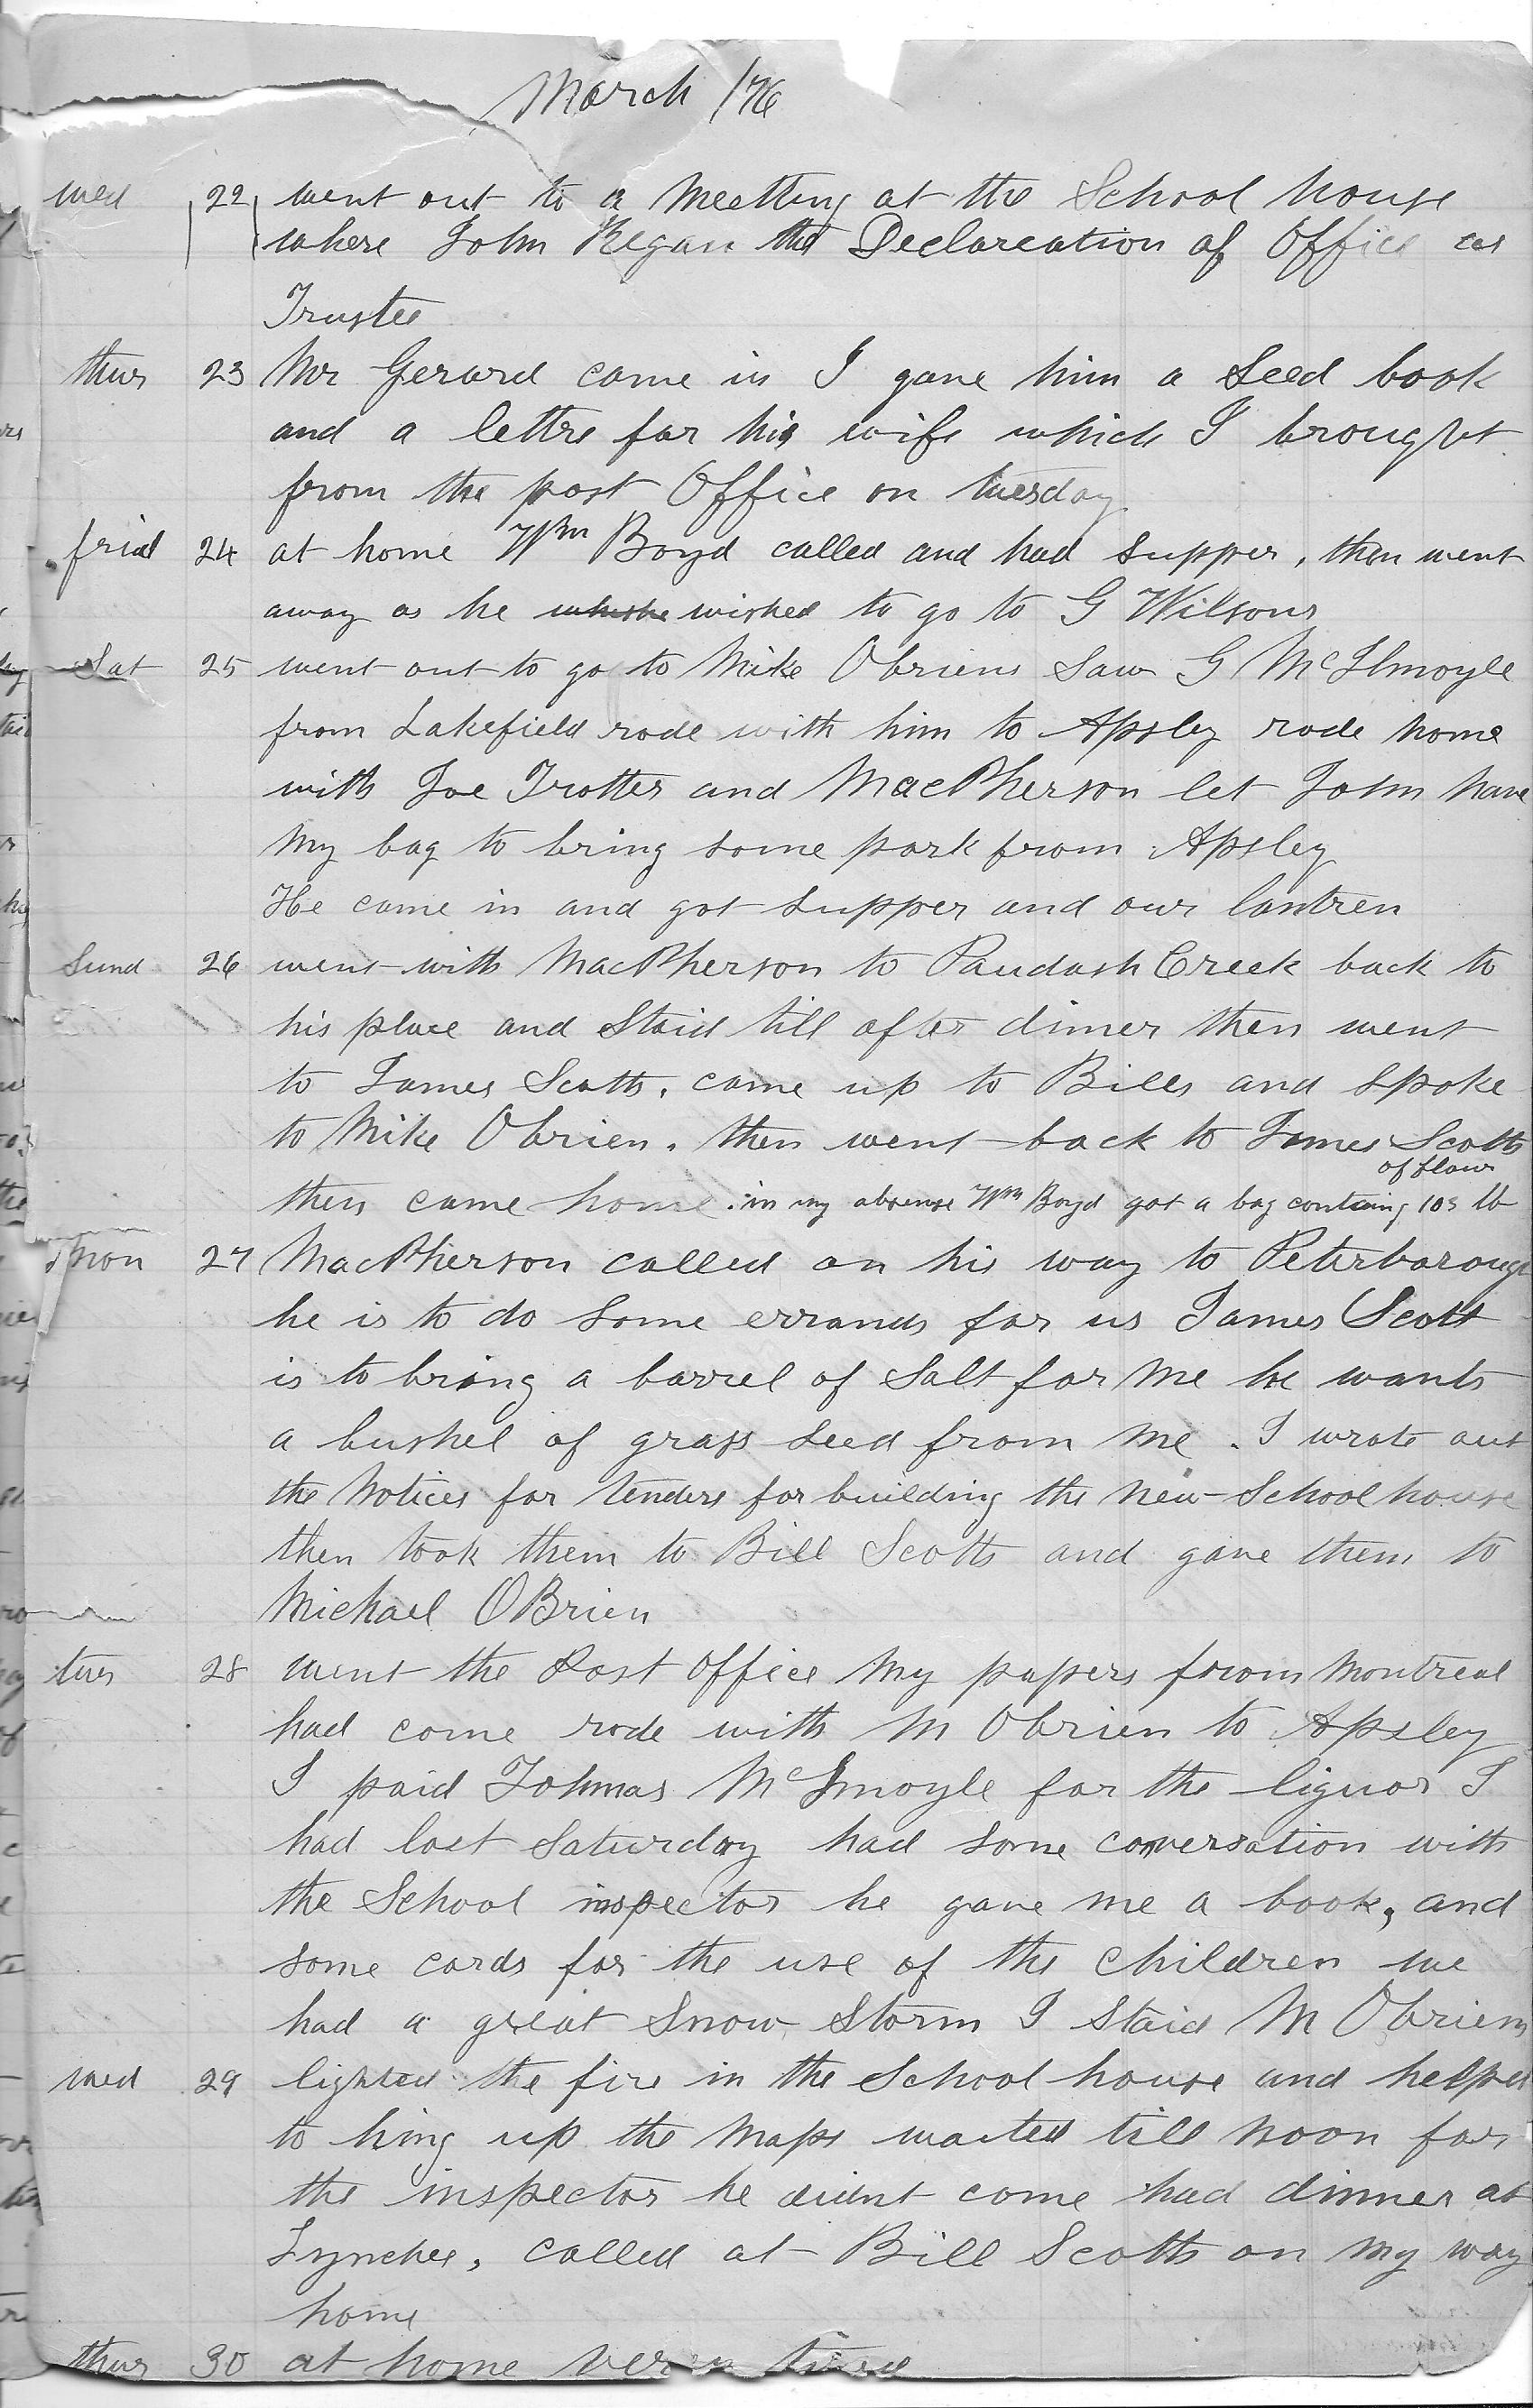 March /76
wed 22 went out to a Meetting at the School house
where John Regan the Declareation of Office as
Trustee
thur 23 Mr Gerard came in I gave him a Seed book
and a lettre for his wife which I brought
from the post Office on tuesday
frid 24 at home Wm Boyd called and had supper, then went
away as he wished to go to G Wilsons
Sat 25 went out to go to Mike Obriens Saw G McIlmoyle
from Lakefield rode with him to Apsley rode home
with Joe Trotter and MacPherson let John have
My bag to bring some pork from Apsley
He came in and got supper and our lantren
Sund 26 went with MacPherson to Paudash Creek back to
his place and Staid till after dinner then went
to James Scotts. came up to Bills and spoke
to Mike Obrien. then went back to James Scotts
of flour
then came home. in my absense Wm Boyd got a bag containg 103 lb
Mon 27 MacPherson called on his way to Peterboroug
he is to do some errands for us James Scott
is to bring a barrel of Salt for Me he wants
a bushel of grass seed from Me. I wrote out
the Notices for tenders for building the New School house
then took them to Bill Scotts and gave them to
Michael OBrien
tues 28 went the Post Office My papers from Montreal
had come rode with M Obrien to Apsley
I paid Tohmas McIlmoyle for the liquor I
had last Saturday had some conversation with
the School inspector he gave me a book, and
some cards for the use of the Children we
had a great Snow Storm I Staid M Obriens
wed 29 lighted the fire in the School house and helped
to hing up the Maps waited till Noon for
the inspector he didnt come had dinner at
Lynches, called at Bill Scotts on My way
home
thur 30 at home very tired